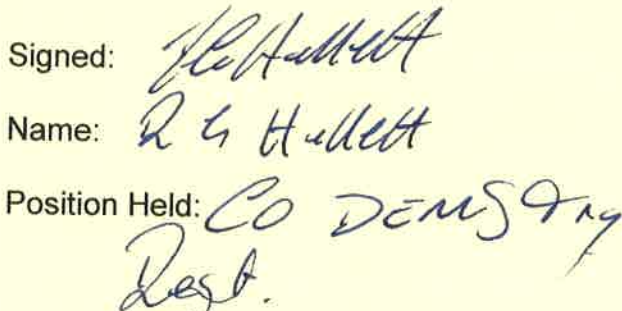 Signed: RG Hallett
Name: R G Hallett
Position Held: CO DEMS Trg
Regt.